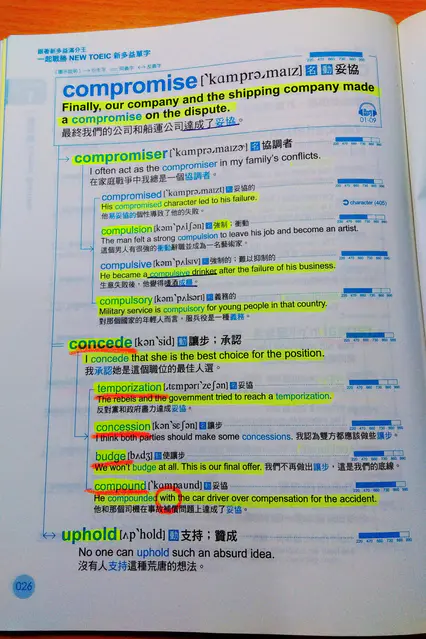 跟著新多益滿分王
一起戰勝 NEW TOEIC 新多益單字
compromise [ˈkɑmprəˌmaɪz] 名 動 妥協
Finally, our company and the shipping company made
a compromise on the dispute.
最終我們的公司和船運公司達成了妥協。
01-09
compromiser [ˈkɑmprəˌmaɪzɚ] 名 協調者
I often act as the compromiser in my family's conflicts.
在家庭戰爭中我總是一個協調者。
compromised [ˈkɑmprəˌmaɪzt] 妥協的
His compromised character led to his failure.
他易妥協的個性導致了他的失敗。
character (405)
compulsion [kəmˈpʌlʃən] 名 強制；衝動
The man felt a strong compulsion to leave his job and become an artist.
這個男人有很強的衝動辭職並成為一名藝術家。
compulsive [kəmˈpʌlsɪv] 強制的；難以抑制的
He became a compulsive drinker after the failure of his business.
生意失敗後，他變得嗜酒成癮。
compulsory [kəmˈpʌlsərɪ] 義務的
Military service is compulsory for young people in that country.
對那個國家的年輕人而言，服兵役是一種義務。
concede [kənˈsid] 動 讓步；承認
I concede that she is the best choice for the position.
我承認她是這個職位的最佳人選。
temporization [ˌtɛmpərɪˈzeʃən] 名 妥協
The rebels and the government tried to reach a temporization.
反對黨和政府盡力達成妥協。
concession [kənˈsɛʃən] 名 讓步
I think both parties should make some concessions. 我認為雙方都應該做些讓步。
budge [bʌdʒ] 動 使讓步
We won't budge at all. This is our final offer. 我們不再做出讓步，這是我們的底線。
compound [ˈkɑmpaʊnd] 動 妥協
He compounded with the car driver over compensation for the accident.
他和那個司機在事故補償問題上達成了妥協。
uphold [ʌpˈhold] 動 支持；贊成
No one can uphold such an absurd idea.
沒有人支持這種荒唐的想法。
026